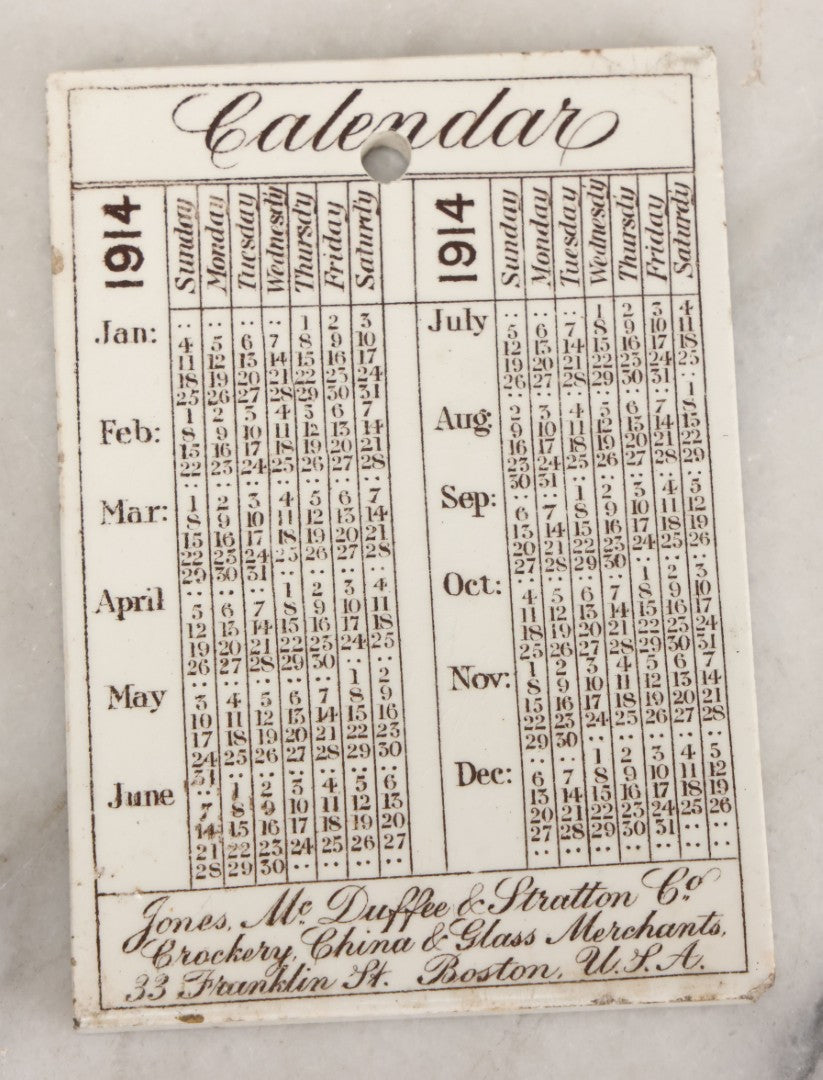 Calendar
1914 Sunday Monday Tuesday Wednesdy Thursdy Friday Saturdy
Jan: .. .. .. .. 1 2 3
4 5 6 7 8 9 10
11 12 13 14 15 16 17
18 19 20 21 22 23 24
25 26 27 28 29 30 31
Feb: 1 2 3 4 5 6 7
8 9 10 11 12 13 14
15 16 17 18 19 20 21
22 23 24 25 26 27 28
Mar: 1 2 3 4 5 6 7
8 9 10 11 12 13 14
15 16 17 18 19 20 21
22 23 24 25 26 27 28
29 30 31 .. .. .. ..
April .. .. .. 1 2 3 4
5 6 7 8 9 10 11
12 13 14 15 16 17 18
19 20 21 22 23 24 25
26 27 28 29 30 .. ..
May .. .. .. .. .. 1 2
3 4 5 6 7 8 9
10 11 12 13 14 15 16
17 18 19 20 21 22 23
24 25 26 27 28 29 30
31 .. .. .. .. .. ..
June .. 1 2 3 4 5 6
7 8 9 10 11 12 13
14 15 16 17 18 19 20
21 22 23 24 25 26 27
28 29 30 .. .. .. ..
1914 Sunday Monday Tuesday Wednesdy Thursdy Friday Saturdy
July .. .. .. 1 2 3 4
5 6 7 8 9 10 11
12 13 14 15 16 17 18
19 20 21 22 23 24 25
26 27 28 29 30 31 ..
Aug. .. .. .. .. .. .. 1
2 3 4 5 6 7 8
9 10 11 12 13 14 15
16 17 18 19 20 21 22
23 24 25 26 27 28 29
30 31 .. .. .. .. ..
Sep: .. .. 1 2 3 4 5
6 7 8 9 10 11 12
13 14 15 16 17 18 19
20 21 22 23 24 25 26
27 28 29 30 .. .. ..
Oct: .. .. .. .. 1 2 3
4 5 6 7 8 9 10
11 12 13 14 15 16 17
18 19 20 21 22 23 24
25 26 27 28 29 30 31
Nov: 1 2 3 4 5 6 7
8 9 10 11 12 13 14
15 16 17 18 19 20 21
22 23 24 25 26 27 28
29 30 .. .. .. .. ..
Dec: .. .. 1 2 3 4 5
6 7 8 9 10 11 12
13 14 15 16 17 18 19
20 21 22 23 24 25 26
27 28 29 30 31 .. ..
.. .. .. .. .. .. ..
Jones, Mc. Duffee & Stratton Co.
Crockery, China & Glass Merchants,
33 Franklin St. Boston, U.S.A.